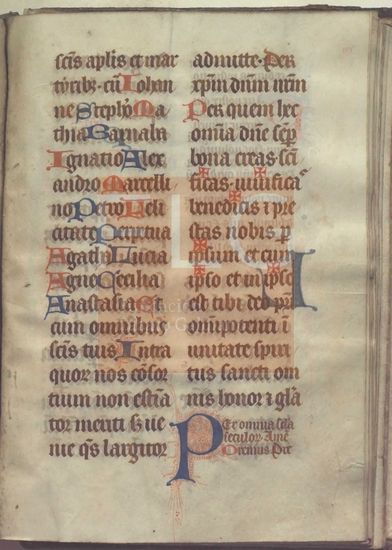 scīs aplīs et mar
tyribꝫ. cū Iohan
ne Stepho Ma
thia Barnaba
Ignatio Alex
andro Marcelli
no Petro Feli
citate Perpetua
Agatha Lucia
Agne Cecilia
Anastasia Et
cum omnibus
scīs tuis. Intra
quor nos cōsor
tium non estīa
tor meriti sꝫ ue
nie q̄s largitor
admitte. Per
xp̄m dn̄m nr̄m
Per quem hec
omīa dn̄e sēp
bona creas. scī
ficas. uiuificas
benedicis ⁊ pre
stas nobis p
ipsum et cum
ipso et in ipso
est tibi deo pr̄i
omīpotenti ī
unitate spiri
tus sancti om
nis honor ⁊ glīa
Per omnia scl̄a
seculoꝝ Amē
Oremus Pre